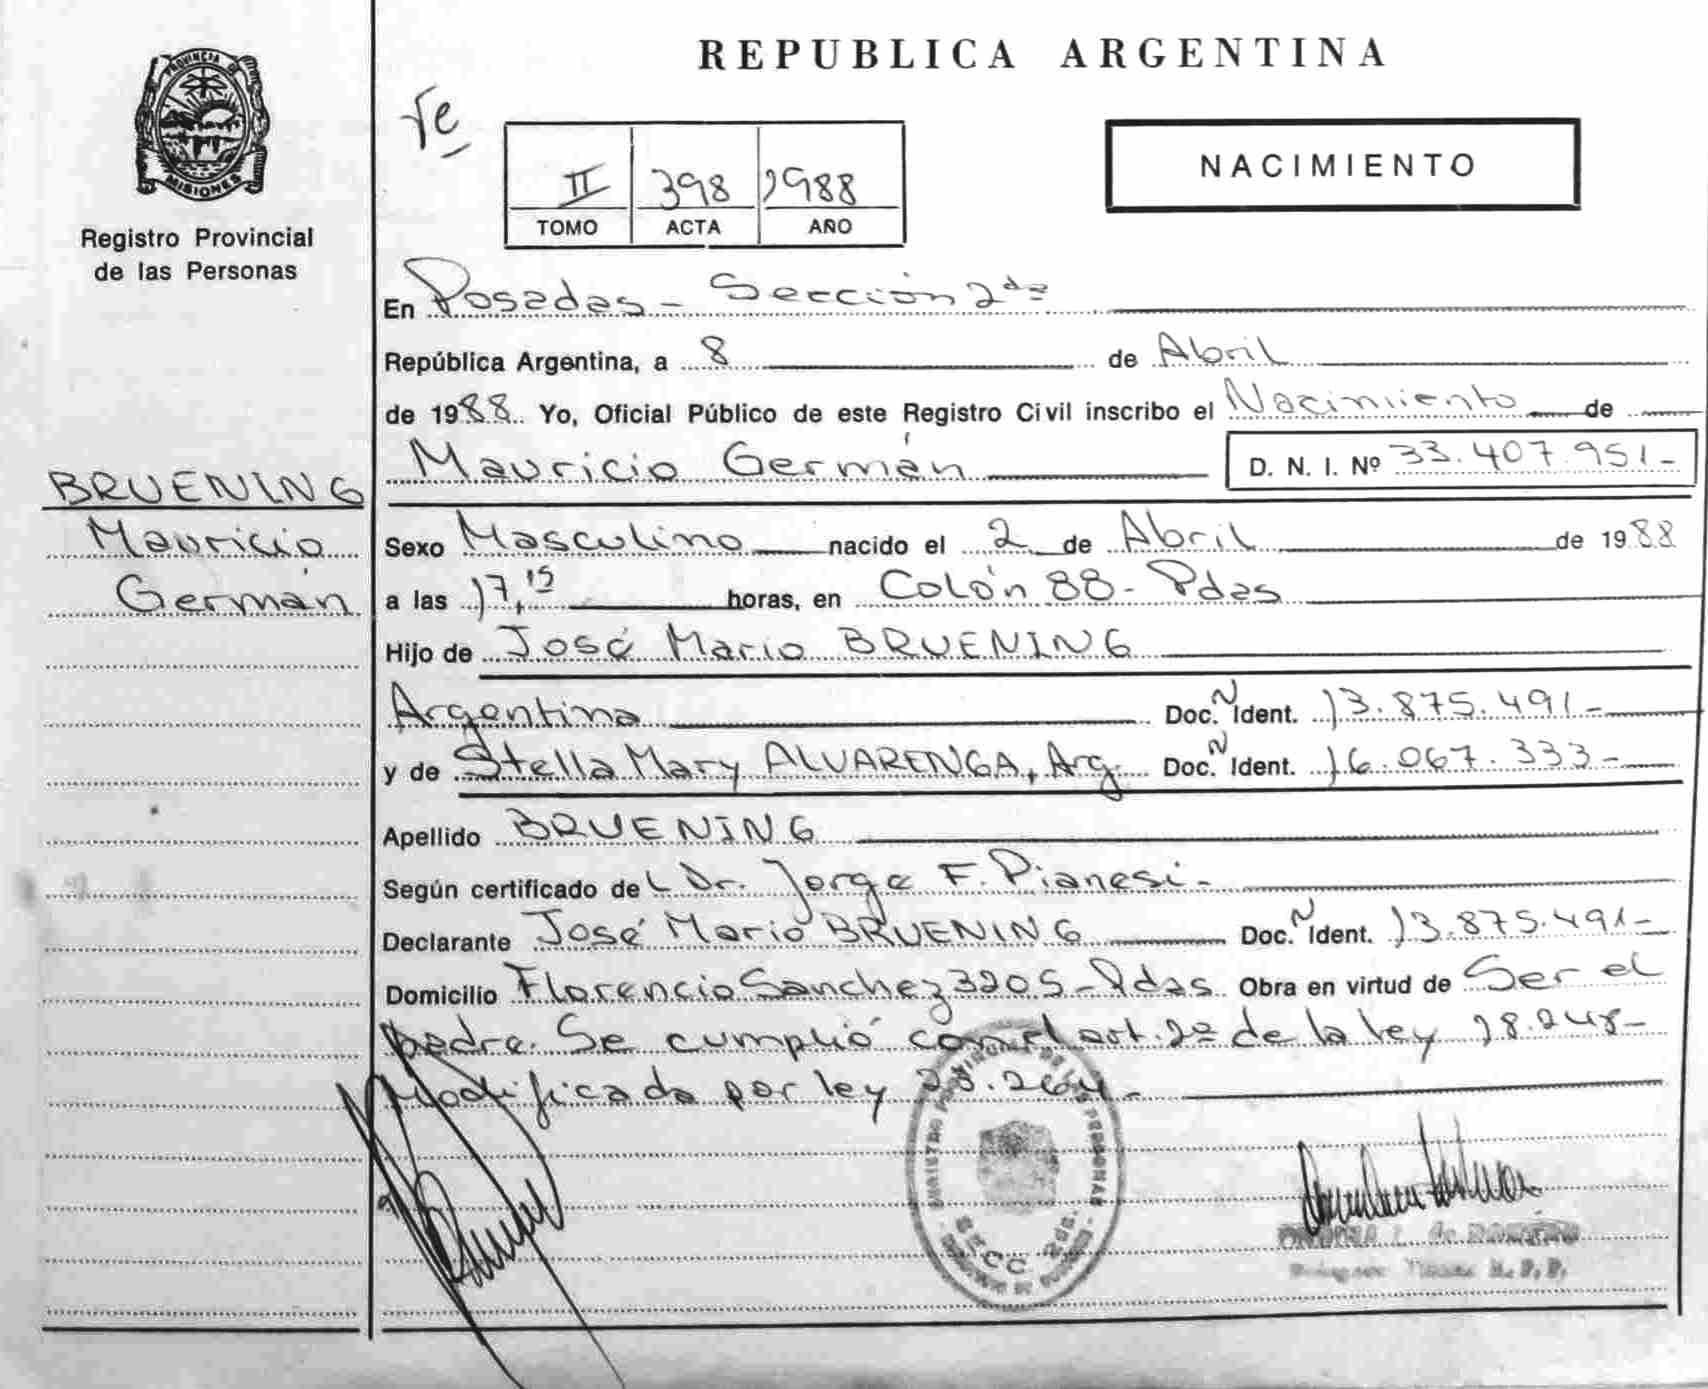 REPUBLICA ARGENTINA
PROVINCIA DE
MISIONES
Registro Provincial
de las Personas
NACIMIENTO
II 398 1988
TOMO ACTA AÑO
En Posadas - Sección 2da
República Argentina, a 8 de Abril
de 1988. Yo, Oficial Público de este Registro Civil inscribo el Nacimiento de
Mauricio Germán D. N. I. Nº 33.407.951-
BRUENING
Mauricio
Germán
Sexo Masculino nacido el 2 de Abril de 1988
a las 17,15 horas, en Colón 88 - Pdas
Hijo de José Mario BRUENING
Argentina Doc. N Ident. 13.875.491-
y de Stella Mary ALVARENGA, Arg. Doc. N Ident. 16.067.333-
Apellido BRUENING
Según certificado del Dr. Jorge F. Pianesi-
Declarante José Mario BRUENING Doc. N Ident. 13.875.491-
Domicilio Florencio Sanchez 3205 - Pdas Obra en virtud de Ser el
padre. Se cumplió con el art. 2º de la ley 18.248-
Modificada por ley 23.264-
SECC. 2da.